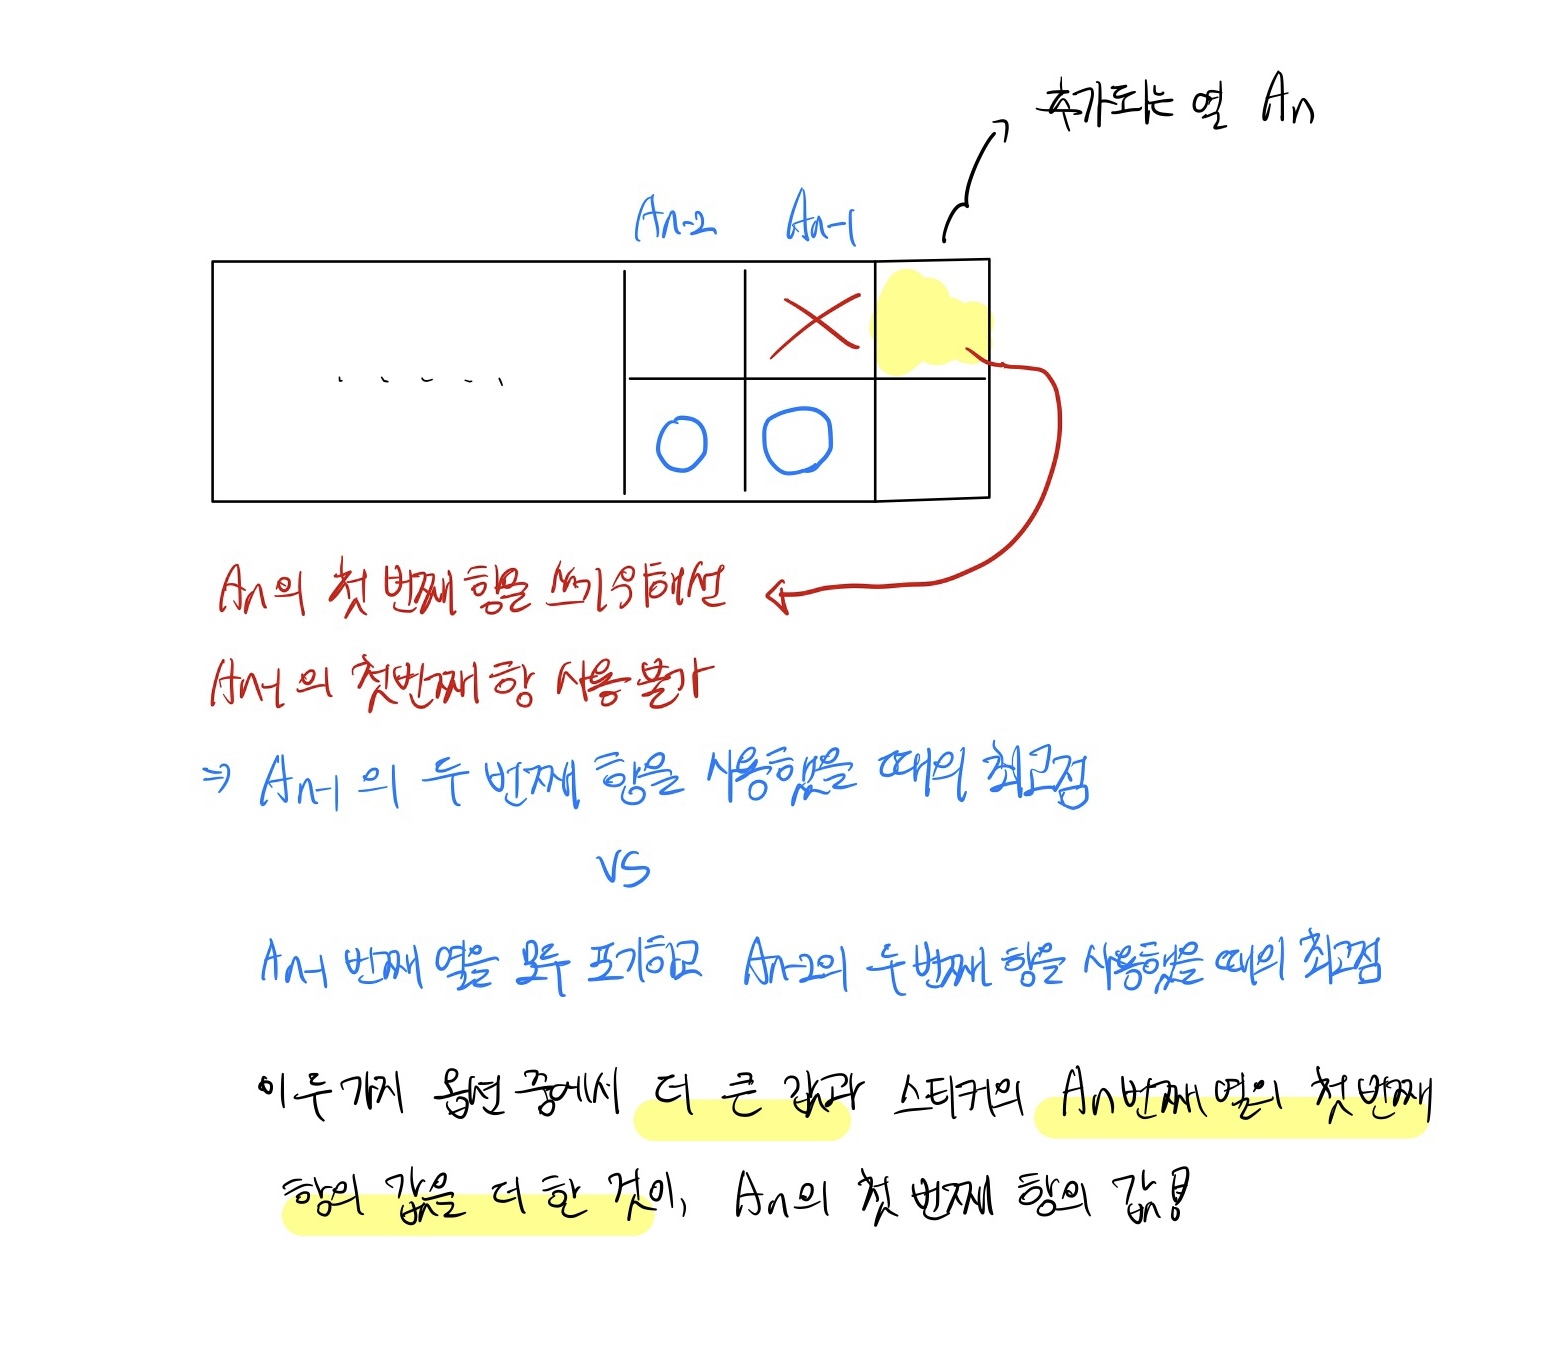 추가되는 열 An
An-2 An-1
An의 첫 번째 항을 쓰기 위해선
An-1의 첫번째 항 사용 불가
⇒ An-1의 두 번째 항을 사용했을 때의 최고점
vs
An-1 번째 열을 모두 포기하고 An-2의 두 번째 항을 사용했을 때의 최고점
이 두 가지 옵션 중에서 더 큰 값과 스티커의 An번째 열의 첫 번째
항의 값을 더 한 것이, An의 첫 번째 항의 값!